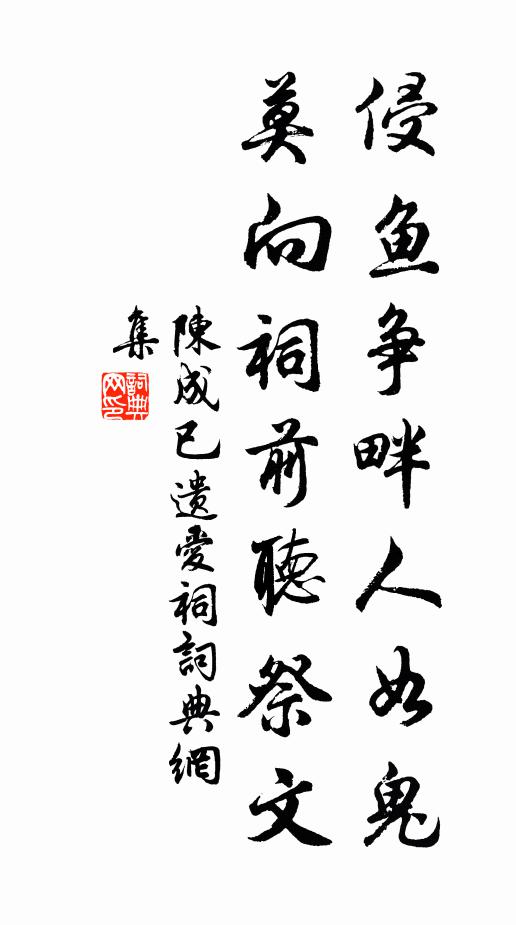 侵鱼争畔人如鬼
莫向祠前聽祭文
陳成已遺愛祠詞典網
集
詞典
网印